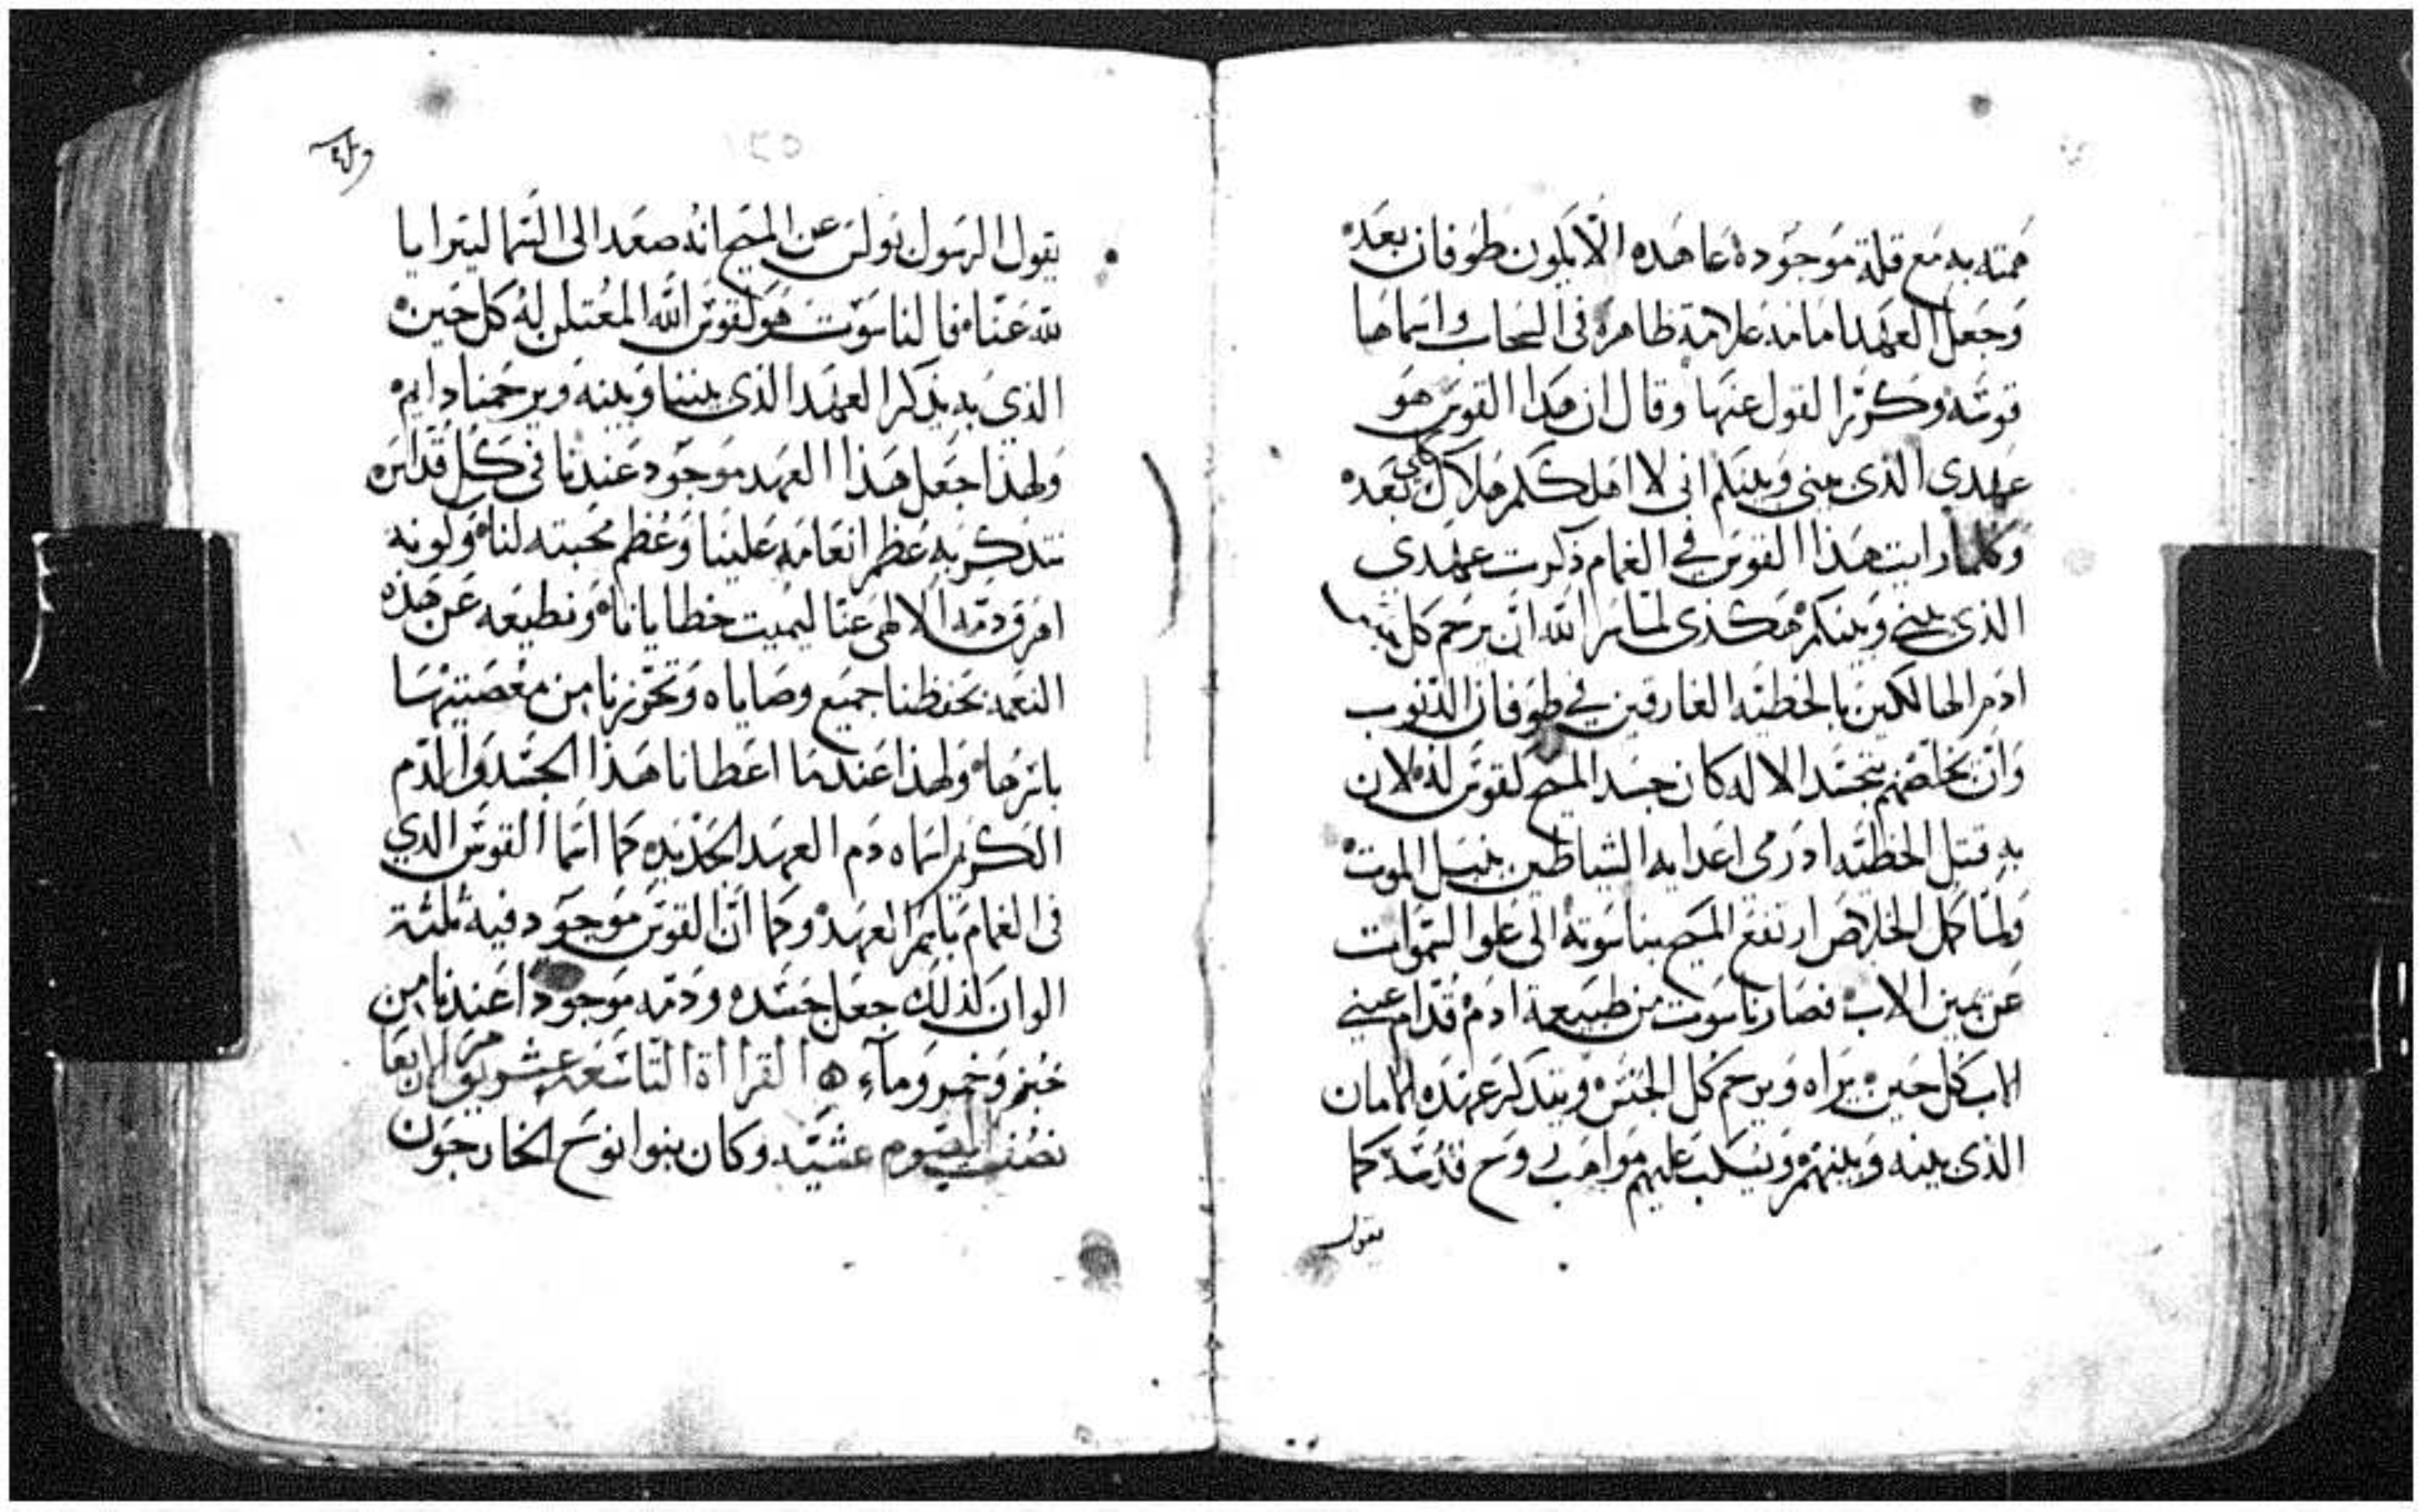 همته به مع قلة موجوده عاهده الا يكون طوفان بعده
وجعل العهد امانه علامة ظاهره فى السحاب واسماها
قوسه وكرر القول عنها وقال ان هدا القوس هو
عهدى الذى بينى وبينكم انى لا اهلككم هلاك كلى بعده
وكلما رايت هذا القوس في الغمام ذكرت عهدي
الذى بيني وبينكم هكذى لما سر الله ان يرحم كل بنى
ادم الهالكين بالخطيه الغارقين في طوفان الذنوب
وان يخلصهم بتجسد الاله كان جسد المسيح كقوس له لان
به قتل الخطيه اد رمى اعدايه الشياطين بنبل الموت
ولما كمل الخلاص ارتفع المسيح بناسوته الى علو السموات
عن يمين الاب فصار ناسوت من طبيعة ادم قدام عيني
الاب كل حين يراه ويرحم كل الجنس ويتذكر عهده الامان
الذى بينه وبينهم ويسكب عليهم مواهب روح قدسه كما
يقول
يقول الرسول بولس عن المسيح انه صعد الى السما ليترايا
لله عنا فالناسوت هو كقوس الله المعتلن له كل حين
الذى به يذكر العهد الذى بيننا وبينه ويرحمنا دايم
ولهذا جعل هذا العهد موجود عندنا فى كل قداس
نتذكر به عظم انعامه علينا وعظم محبته لنا وكونه
اهرق دمه الالهى عنا ليميت خطايانا ونطيعه عن هذه
النعمه بحفظنا جميع وصاياه وتحرزنا من معصيتها
باسرها ولهذا عندما اعطانا هذا الجسد والدم
الكريم اسماه دم العهد الجديد كما اسما القوس الدي
فى الغمام باسم العهد وكما ان القوس موجود فيه ثلثة
الوان كذلك جعل جسده ودمه موجودا عندنا من
خبز وخمر وماء القراأة التاسعه عشر يوم الاربعا
نصف الصوم عشيه وكان بنوا نوح الخارجون